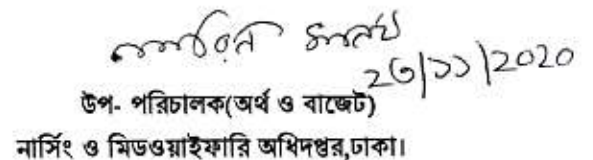 ২৩/১১/2020
উপ- পরিচালক(অর্থ ও বাজেট)
নার্সিং ও মিডওয়াইফারি অধিদপ্তর,ঢাকা।